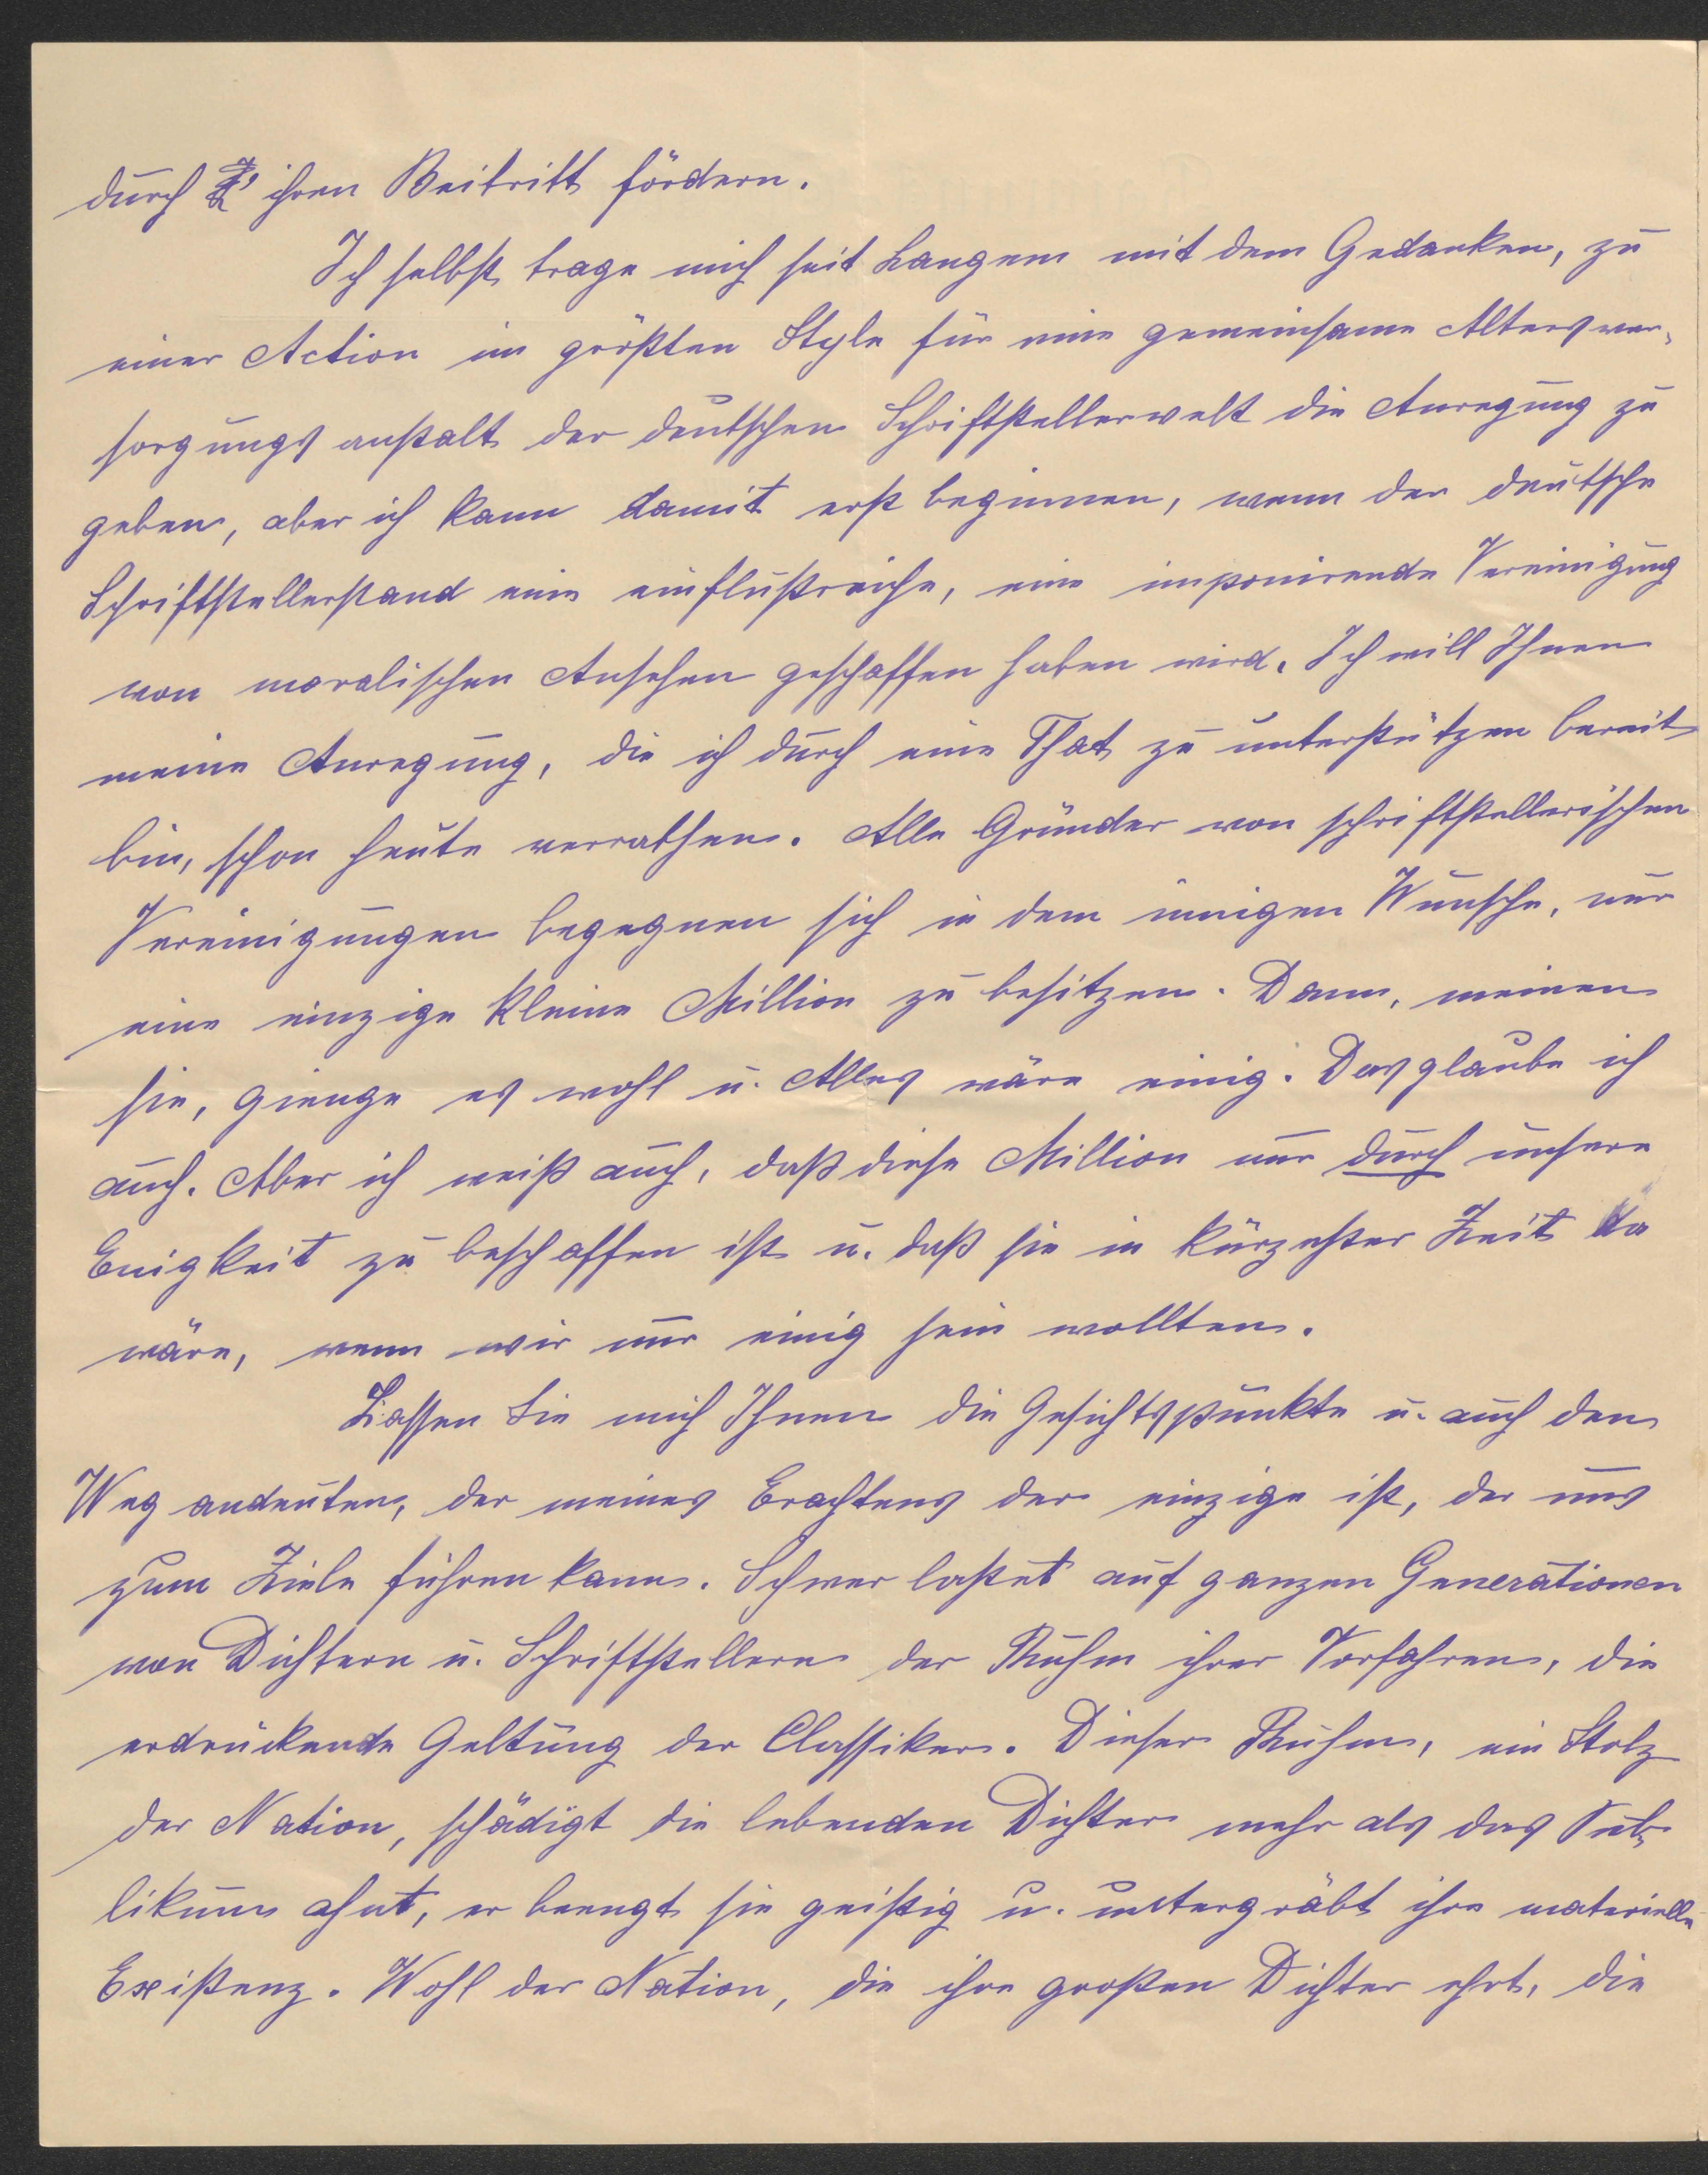 durch ihren Beitritt fördern.
Ich selbst trage mich seit Langem mit dem Gedanken, zu
einer Action im größten Style für eine gemeinsame Altersver-
sorgungsanstalt der deutschen Schriftstellerwelt die Anregung zu
geben, aber ich kann damit erst beginnen, wenn der deutsche
Schriftstellerstand eine einflußreiche, eine imponirende Vereinigung
von moralischen Ansehen geschaffen haben wird. Ich will Ihnen
meine Anregung, die ich durch eine That zu unterstützen bereit
bin, schon heute verrathen. Alle Gründer von schriftstellerischen
Vereinigungen begegnen sich in dem innigen Wunsche, nur
eine einzige kleine Million zu besitzen. Dann, meinen
sie, gienge es wohl u. Alles wäre einig. Das glaube ich
auch. Aber ich weiß auch, daß diese Million nur durch unsere
Enigkeit zu beschaffen ist u. daß sie in kürzester Zeit da
wäre, wenn wir nur einig sein wollten.
Lassen Sie mich Ihnen die Gesichtspunkte u. auch den
Weg andeuten, der meines Erachtens der einzige ist, der uns
zum Ziele führen kann. Schwer lastet auf ganzen Generationen
von Dichtern u. Schriftstellern der Ruhm ihrer Vorfahren, die
erdrückende Geltung der Classiker. Dieser Ruhm, ein Stolz
der Nation, schädigt die lebenden Dichter mehr als das Pub-
likum ahnt, er beengt sie geistig u. untergräbt ihre materielle
Existenz. Wohl der Nation, die ihre großen Dichter ehrt, die